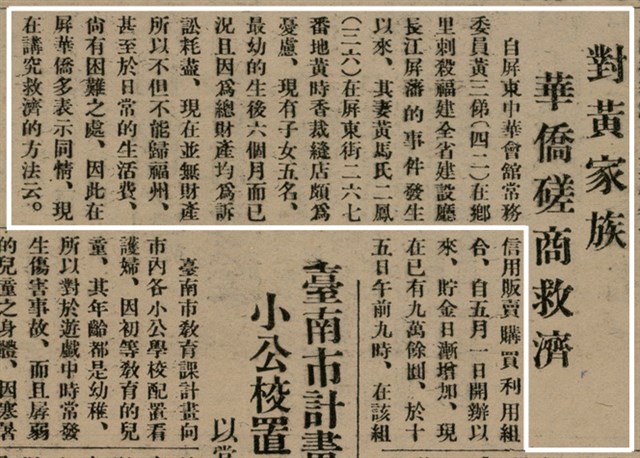 對黃家族
華僑磋商救濟
自屏東中華會館常務
委員黃三俤(四二)在鄉
里刺殺福建全省建設廳
長江屏藩的事件發生
以來、其妻黃馬氏二鳳
(三六)在屏東街二六七
番地黃時香裁縫店頗爲
憂慮、現有子女五名、
最幼的生後六個月而已
況且因爲總財產均爲訴
訟耗盡、現在並無財產
所以不但不能歸福州、
甚至於日常的生活費、
尙有困難之處、因此在
屏華僑多表示同情、現
在講究救濟的方法云。
信用販賣購買利用組
合、自五月一日開辦以
來、貯金日漸增加、現
在已有九萬餘圓、於十
五日午前九時、在該組
臺南市計畫
小公校置
以常
臺南市敎育課計畫向
市內各小公學校配置看
護婦、因初等敎育的兒
童、其年齡都是幼稚、
所以對於遊戲中時常發
生傷害事故、而且孱弱
的兒童之身體、因寒暑